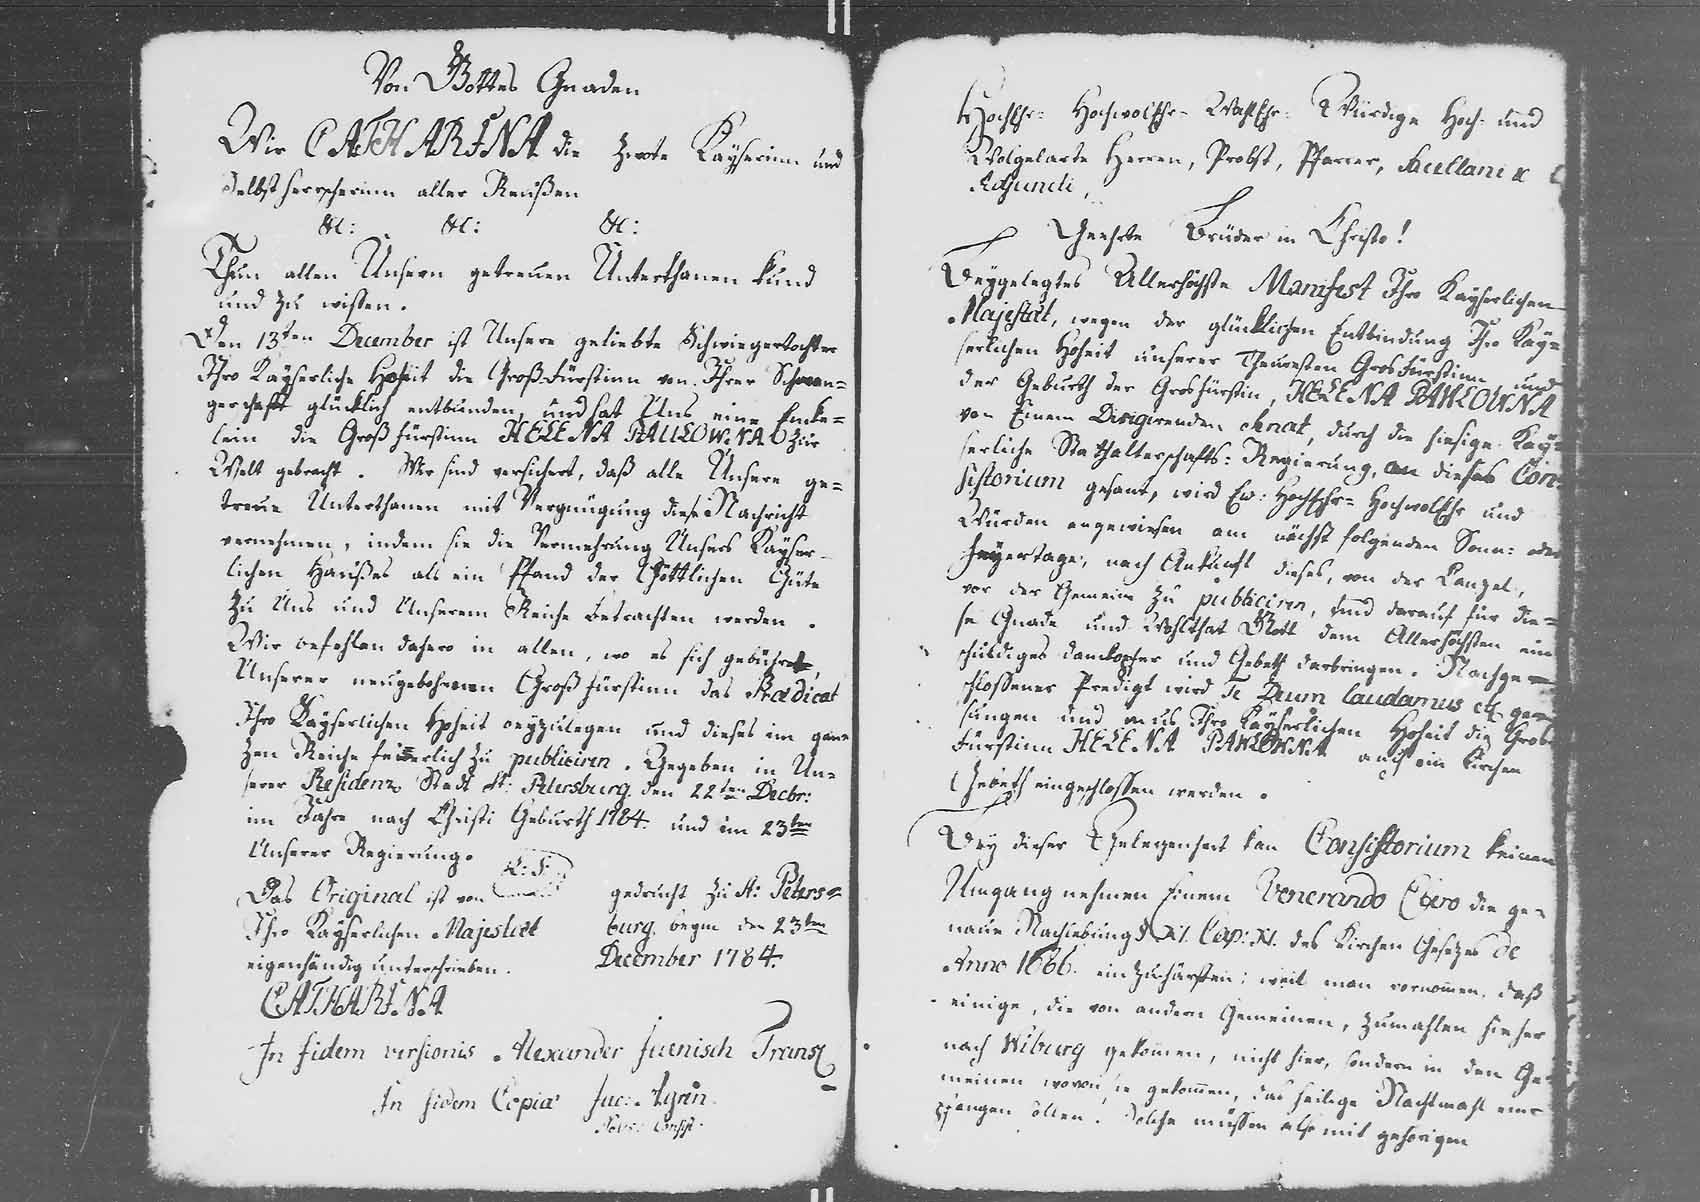 Von Gottes Gnaden
Wir CATHARINA die Zwote Kayserinn und
Selbstherrscherinn aller Reußen
&c: &c: &c:
Thun allen Unsern getreuen Unterthanen kund
und zu wissen.
Den 13ten December ist Unsere geliebte Schwiegertochter
Ihro Kayserliche Hoheit die Groß-Fürstinn von Ihrer Schwan-
gerschafft glücklich entbunden, und hat Uns eine Enke-
lein die Großfürstinn HELENA PAULOWNA zur
Welt gebracht. Wir sind versichert, daß alle Unsere ge-
treue Unterthanen mit Vergnügung diese Nachricht
vernehmen, indem sie die Vermehrung Unsers Kayser-
lichen Haußes als ein Pfand der Göttlichen Güte
zu Uns und Unserem Reiche betrachten werden.
Wir befehlen dahero in allen, wo es sich gebühret,
Unserer neugebohrnen Großfürstinn das Prædicat
Ihro Kayserlichen Hoheit beyzulegen und dieses im gan-
zen Reiche feierlich zu publiciren. Gegeben in Un-
serer Residenz Stadt St: Petersburg den 22ten Decbr:
im Jahre nach Christi Geburth 1784. und im 23ten
Unserer Regierung.
L: S:
Das Original ist von
Ihro Kayserlichen Majestæt
eigenhändig unterschrieben.
CATHARINA
gedruckt zu St: Peters-
burg beym den 23ten
December 1784.
In fidem versionis Alexander Juenisch Transl
In fidem Copiæ Jac: Agrén
Hochehr- Hochwolehr- Wohlehr- Würdige Hoch- und
Wolgelarte Herren, Probst, Pfarrer, Sacellani &
Adjuncti,
Geehrte Brüder in Christo!
Beygelegtes Allerhöchste Manifest Ihro Kayserlichen
Majestät, wegen der glücklichen Entbindung Ihro Kay-
serlichen Hoheit unserer Theuresten Grosfürstinn und
der Geburth der Grosfürstin, HELENA PAWLOWNA
von Einem Dirigirenden Senat, durch die hiesige Kay-
serliche Stathalterschafts-Regierung, an dieses Con-
sistorium gesant, wird Ew: Hochehr- Hochwolehr und
Würden angewiesen am nächst folgenden Sonn- oder
Feyertage, nach Ankunft dieses, von der Canzel,
vor der Gemeine zu publiciren, und darauf für die-
se Gnade und Wohlthat Gott dem Allerhöchsten ein
schuldiges Dankopfer und Gebeth darbringen. Nachge-
schlossener Predigt wird Te Deum laudamus etc. ge-
sungen und muß Ihro Kayserlichen Hoheit die Gros-
Fürstinn HELENA PAWLOWNA auch ein Kirchen
Gebeth eingeschlossen werden.
Bey dieser Gelegenheit kan Consistorium keinen
Umgang nehmen Einem Venerando Clero die ge-
naue Nachlebung § XI. Cap: XI. des Kirchen Gesetzes de
Anno 1686. einzuschärfen; weil man vernommen, daß
einige, die von andern Gemeinen, zumahlen hieher
nach Wiburg gekommen, nicht hier, sondern in den Ge-
meinen wovon sie gekommen, das heilige Nachtmahl em-
pfangen sollen. Solche müssen also mit gehörigen